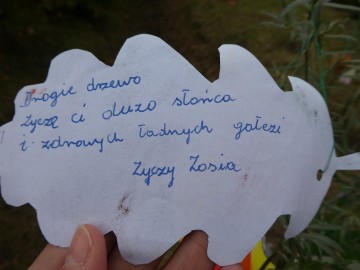 Drogie drzewo
Życzę ci dużo słońca
i zdrowych ładnych gałęzi
Życzy Zosia